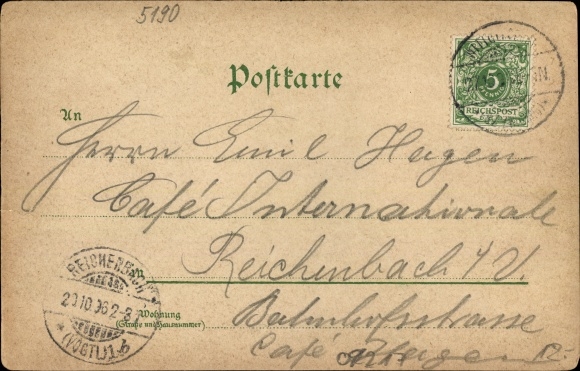 5190
Postkarte
5
REICHSPOST
An
Herrn Emil Hagen
Café Internationale
in Reichenbach i/V.
REICHENBACH
29 10 96 2-3
(VOGTL) 1 b
Wohnung
(Straße und Hausnummer)
Bahnhofstrasse
Café
12.-